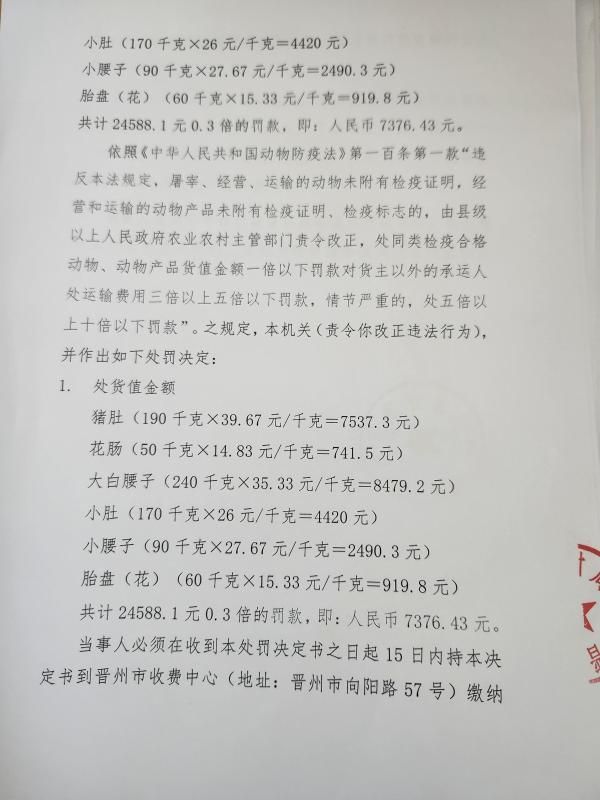 小肚（170 千克×26 元/千克＝4420 元）
小腰子（90 千克×27.67 元/千克＝2490.3 元）
胎盘（花）（60 千克×15.33 元/千克＝919.8 元）
共计 24588.1 元 0.3 倍的罚款，即：人民币 7376.43 元。
依照《中华人民共和国动物防疫法》第一百条第一款“违
反本法规定，屠宰、经营、运输的动物未附有检疫证明，经
营和运输的动物产品未附有检疫证明、检疫标志的，由县级
以上人民政府农业农村主管部门责令改正，处同类检疫合格
动物、动物产品货值金额一倍以下罚款对货主以外的承运人
处运输费用三倍以上五倍以下罚款，情节严重的，处五倍以
上十倍以下罚款”。之规定，本机关（责令你改正违法行为），
并作出如下处罚决定：
1. 处货值金额
猪肚（190 千克×39.67 元/千克＝7537.3 元）
花肠（50 千克×14.83 元/千克＝741.5 元）
大白腰子（240 千克×35.33 元/千克＝8479.2 元）
小肚（170 千克×26 元/千克＝4420 元）
小腰子（90 千克×27.67 元/千克＝2490.3 元）
胎盘（花）（60 千克×15.33 元/千克＝919.8 元）
共计 24588.1 元 0.3 倍的罚款，即：人民币 7376.43 元。
当事人必须在收到本处罚决定书之日起 15 日内持本决
定书到晋州市收费中心（地址：晋州市向阳路 57 号）缴纳